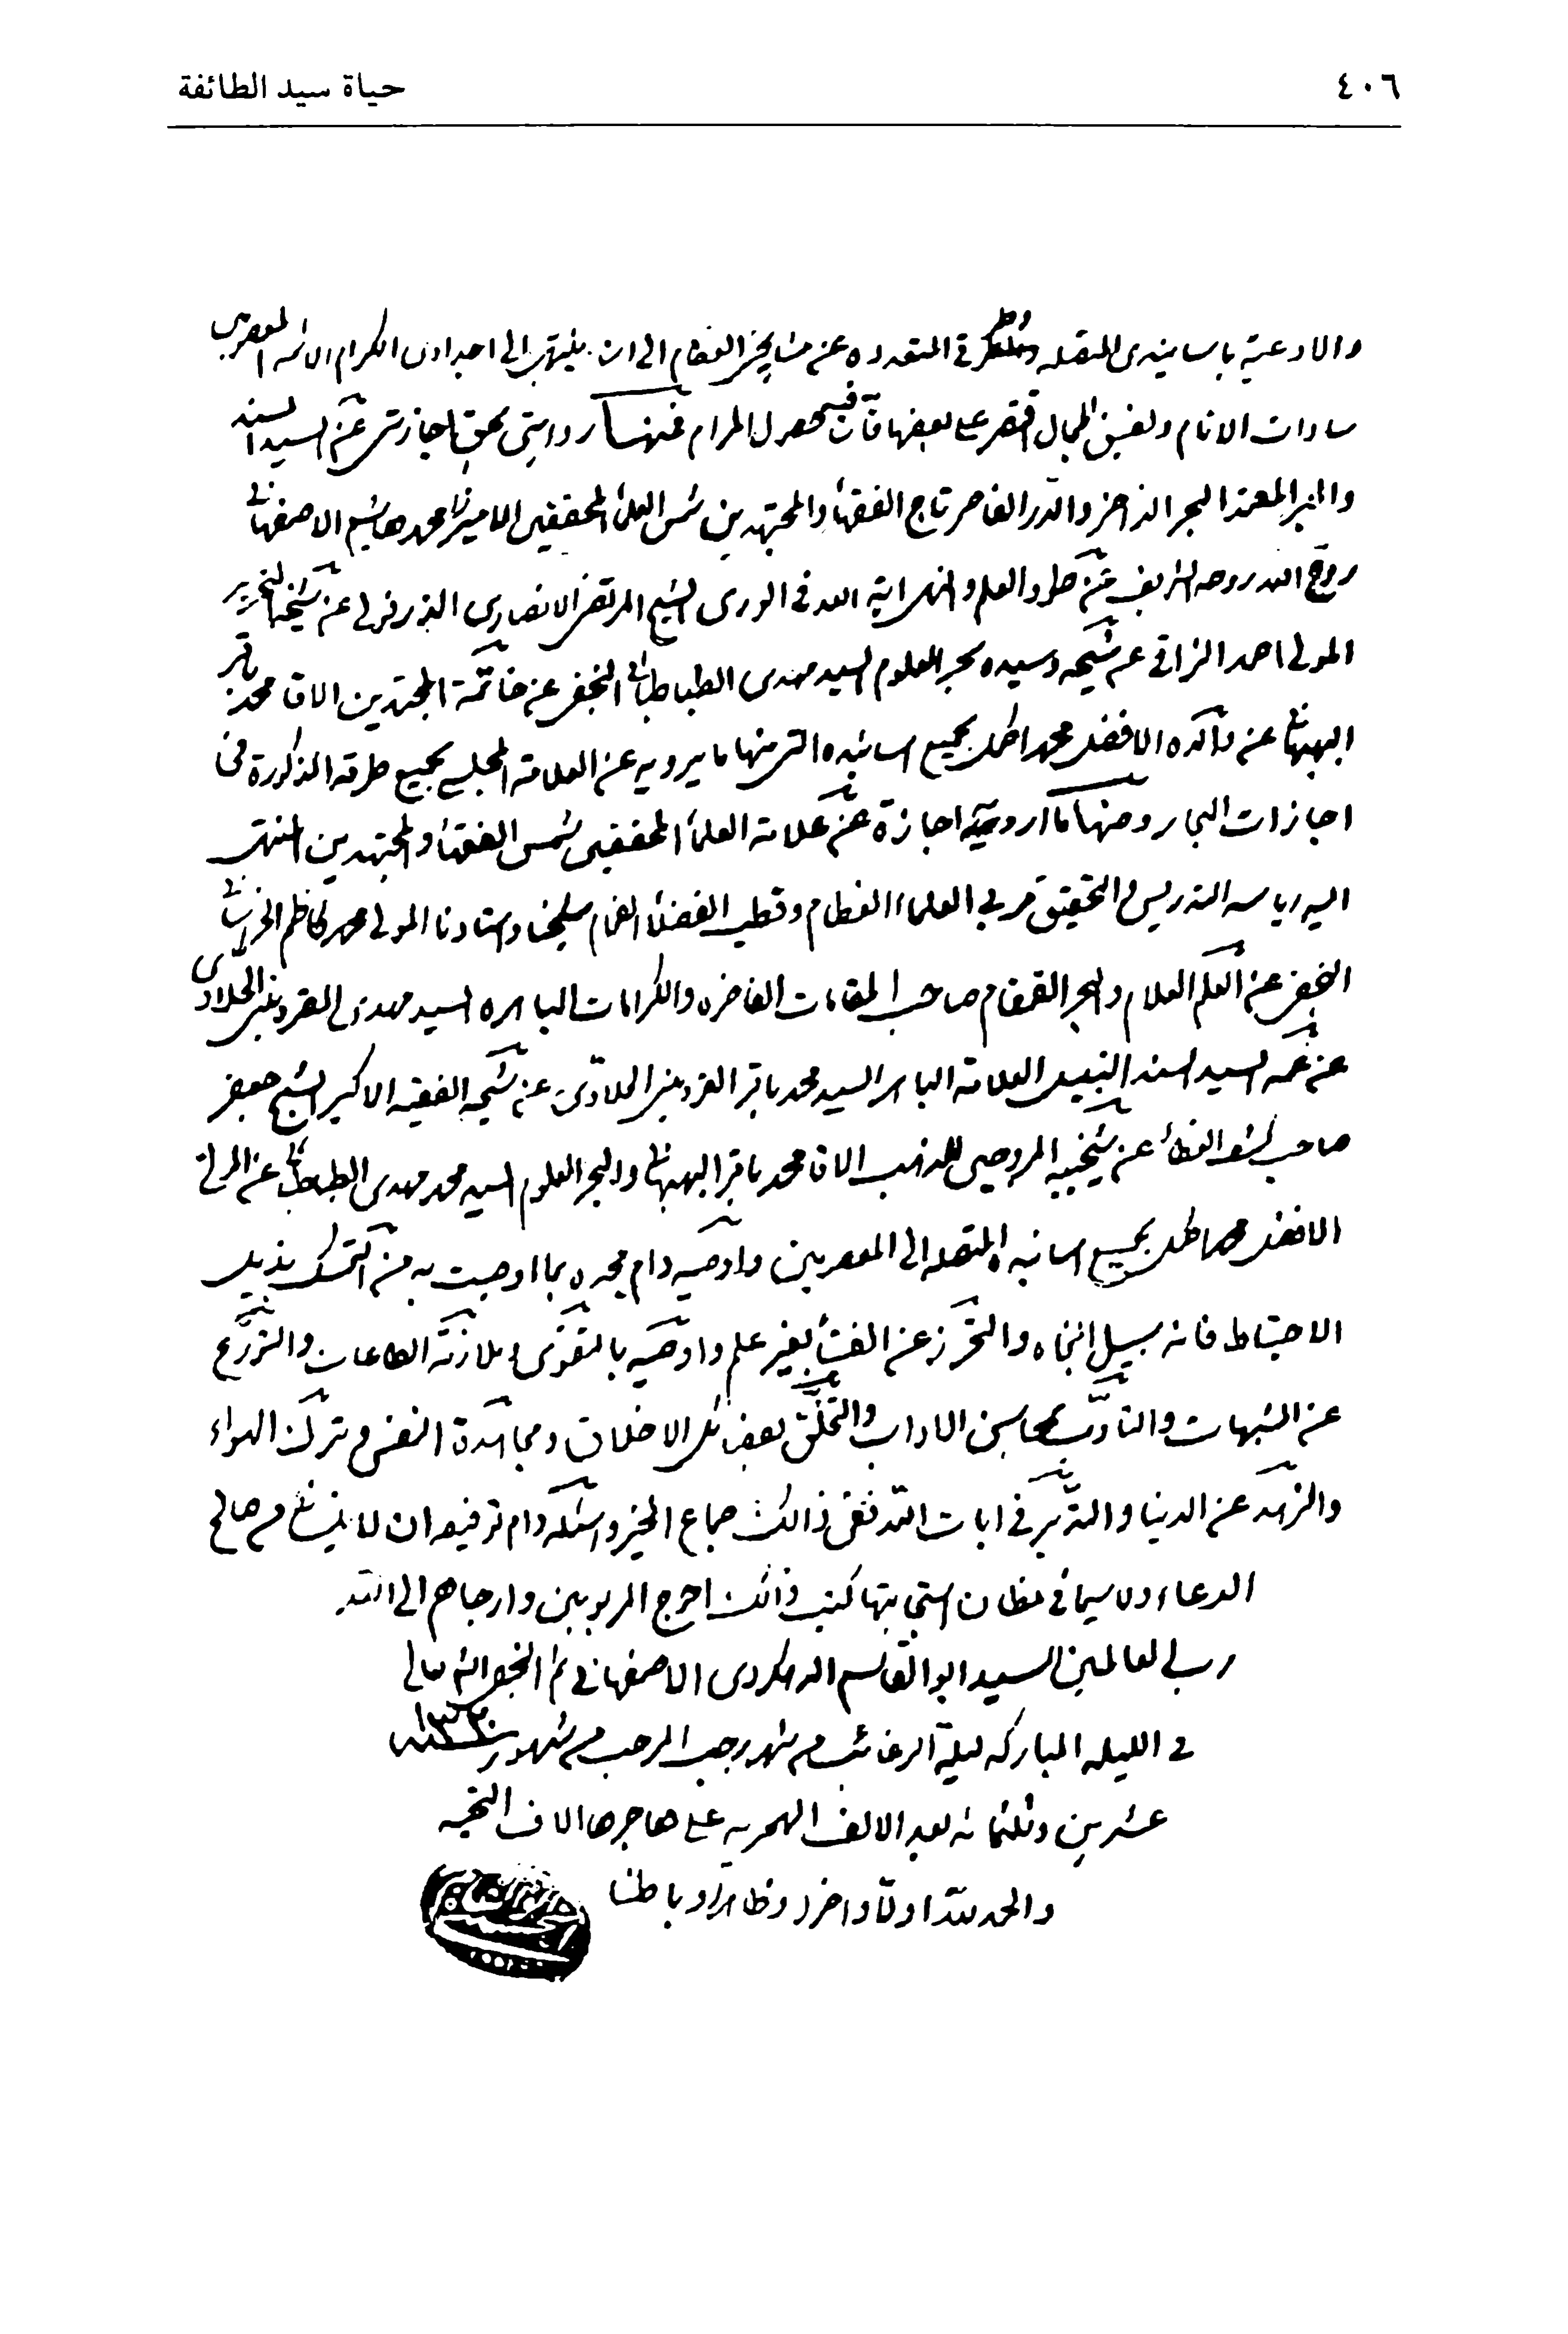 ٤٠٦
حياة سيد الطائفة
والادعية باسانيدى المتصله وطرقى المتعدده عن مشايخى العظام الى ان ينتهى الى اجدادى الكرام الائمه المعصومين
سادات الانام ولضيق المجال اقتصر على بعضها فان فيه حصول المرام فمنها روايتى بحق اجازتى عن السيد السند
والحبر المعتمد البحر الزاخر والدر الفاخر تاج الفقهاء والمجتهدين شمس العلماء المحققين الاميرزا محمد هاشم الاصفهانى
روح الله روحه الشريف عن طود العلم و اية الله فى الورى الشيخ المرتضى الانصارى الدزفولى عن شيخه النحرير
المولى احمد النراقى عن شيخه وسيده بحر العلوم السيد مهدى الطباطبائى النجفى عن خاتمة المجتهدين الاقا محمد باقر
البهبهانى عن والده الافضل محمد اكمل بجميع اسانيده التى منها ما يرويه عن العلامه المجلسى بجميع طرقه المذكورة فى
اجازات البحار ومنها ما ارويه اجازة عن علامه العلماء المحققين شمس الفقهاء والمجتهدين المنتهى
اليه رياسه التدريس والتحقيق مربى العلماء العظام وقطب الفضلاء الفخام شيخنا واستادنا المولى محمد كاظم الخراسانى
النجفى عن العلم العلام والبحر القمقام صاحب المقامات الفاخره والكرامات الباهره السيد مهدى القزوينى الحلاوى
عن عمه السيد السند النبيل العلامه الباهر السيد محمد باقر القزوينى الحلاوى عن شيخه الفقيه الاكبر الشيخ جعفر
صاحب كشف الغطاء عن شيخيه المروجين للمذهب الاقا محمد باقر البهبهانى والبحر العلوم السيد محمد مهدى الطباطبائى عن المولى
الافضل محمد اكمل بجميع اسانيده المتصله الى المعصومين واوصيه دام مجده بما اوصيت به من التمسك بذيل
الاحتياط فانه سبيل النجاه والتحرز عن الفتياء بغير علم واوصيه بالتقوى وملازمة الطاعات والتورع
عن الشبهات والتادب بمحاسن الاداب والتخلق بفضائل الاخلاق ومجاهدة النفس وترك الهواء
والزهد عن الدنيا والتدبر فى ايات الله ففى ذالك جماع الخير واسئله دام توفيقه ان لا ينسانى من صالح
الدعاء ولا سيما فى مظان استجابتها كتب ذالك احوج المربوبين وارجاهم الى الله
رب العالمين السيد ابو القاسم الدهكردى الاصفهانى ثم النجفى
فى الليله المباركه ليلة الرغائب من شهر رجب المرجب من شهور سنه ١٣٢٠
عشرين وثلثمائه بعد الالف الهجريه على هاجرها الاف التحيه
والحمد لله اولا واخرا وظاهرا وباطنا